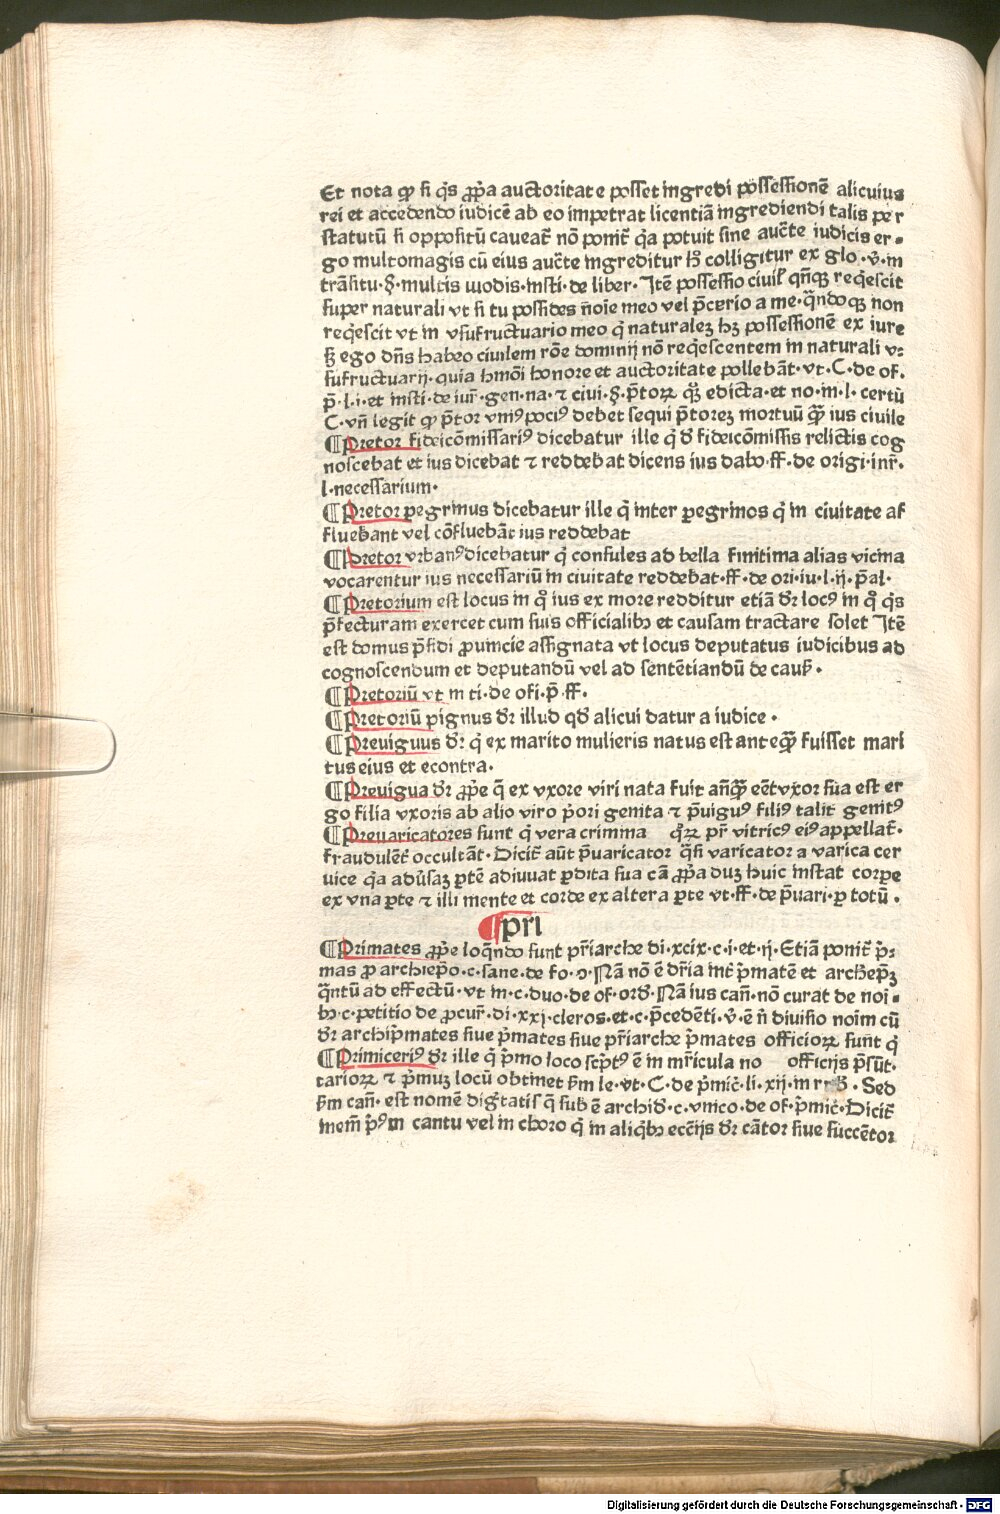 Et nota ꝙ si q̃s ꝓp̃a auctoritate posset ingredi possessionẽ alicuius
rei et accedendo iudicẽ ab eo impetrat licentiã ingrediendi talis per
statutũ si oppositũ caueat᷒ nõ ponit᷒ q̃a potuit sine auc̃te iudicis er-
go multomagis cũ eius auc̃te ingreditur hoc̃ colligitur ex glo · v̾ · in
trãsitu · §· multis modis · insti · de liber · Itẽ possessio ciuil᷒ qñqꝫ req̃escit
super naturali vt si tu possides ñoĩe meo vel p̃cario a me · q̃ndoqꝫ non
req̃escit vt in vsufructuario meo q̃ naturaleꝫ hꝫ possessionẽ ex iure
sꝫ ego dñs habeo ciuilem rõe dominij nõ req̃escentem in naturali v-
sufructuarij · quia hmõi honore et auctoritate pollebãt · vt · C · de of ·
p̃ · l · i · et insti · de iur᷒ · gen · na · ⁊ ciui · §· p̃toꝝ q̃ꝫ edicta · et no · in · l · certũ
C · vñ legit ꝙ p̃tor vniꝰ pociꝰ debet sequi p̃toreꝫ mortuũ q̃ꝫ ius ciuile
¶ Pretor fideicõmissariꝰ dicebatur ille q̃ d̾ fideicõmissis relictis cog
noscebat et ius dicebat ⁊ reddebat dicens ius dabo · ff · de origi · iur᷒ ·
l · necessarium ·
¶ Pretor ꝑegrinus dicebatur ille q̃ inter ꝑegrinos q̃ in ciuitate af
fluebant vel cõfluebãt ius reddebat
¶ Pretor vrbanꝰ dicebatur q̃ consules ad bella finitima alias vicina
vocarentur ius necessariũ in ciuitate reddebat · ff · de ori · iu · l · ij · p̃al ·
¶ Pretorium est locus in q̊ ius ex more redditur etiã dr̃ locꝰ in q̊ q̃s
p̃fecturam exercet cum suis officialibꝫ et causam tractare solet Itẽ
est domus p̃sidi ꝓuincie assignata vt locus deputatus iudicibus ad
cognoscendum et deputandũ vel ad sentẽtiandũ de caus̃ ·
¶ Pretoriũ vt in ti · de ofi · p̃ · ff ·
¶ Pretoriũ pignus dr̃ illud qd̾ alicui datur a iudice ·
¶ Preuiguus dr̃ q̃ ex marito mulieris natus est anteq̃ꝫ fuisset mari
tus eius et econtra ·
¶ Preuigua dr̃ ꝓp̃e q̃ ex vxore viri nata fuit añq̃ꝫ eẽt vxor sua est er
go filia vxoris ab alio viro p̃ori genita ⁊ p̃uiguꝰ filiꝰ talit᷒ genitꝰ
¶ Preuaricatores sunt q̃ vera crimina q̃ꝝ pr̃ vitricꝰ eiꝰ appellat᷒ ·
fraudulẽt᷒ occultãt · Dicit᷒ aũt p̃uaricator q̃si varicator a varica cer
uice q̃a aduᵬsaꝫ ꝑtẽ adiuuat ꝑdita sua cã ꝓp̃a duꝫ huic instat corꝑe
ex vna ꝑte ⁊ illi mente et corde ex altera ꝑte vt · ff · de p̃uari · ꝑ totũ ·
¶ pri
¶ Primates ꝓp̃e loq̃ndo sunt pr̃iarche di · xcix · c · i · et · ij · Etiã ponit᷒ p̃-
mas ꝓ archiep̃o · c · sane · de fo · ꝯ · Nã nõ ẽ dr̃ia int᷒ p̃matẽ et archiep̃ꝫ
q̃ntũ ad effectũ · vt in · c · duo · de of · ord̾ · Nã ius cañ · nõ curat de noĩ-
bꝫ · c · petitio de ꝓcur᷒ · di · xxj · cleros · et · c · p̃cedẽti · v̾ · ẽ ñ diuisio noĩm cũ
dr̃ archip̃mates siue p̃mates siue pr̃iarche p̃mates officioꝝ sunt q̃
¶ Primiceriꝰ dr̃ ille q̃ p̃mo loco scp̃tꝰ ẽ in mr̃icula no officijs p̃sũt ·
tarioꝝ ⁊ p̃muꝫ locũ obtinet s̃m le · vt · C · de p̃mic᷒ · li · xij · in · Sed
s̃m cañ · est nomẽ dig̃tatis q̃ sub ẽ archid̾ · c · vnico · de of · p̃mic᷒ · Dicit᷒
inem̃ p̃ꝰ in cantu vel in choro q̃ in aliq̃bꝫ ecc̃ijs dr̃ cãtor siue succẽtor
Digitalisierung gefördert durch die Deutsche Forschungsgemeinschaft - DFG